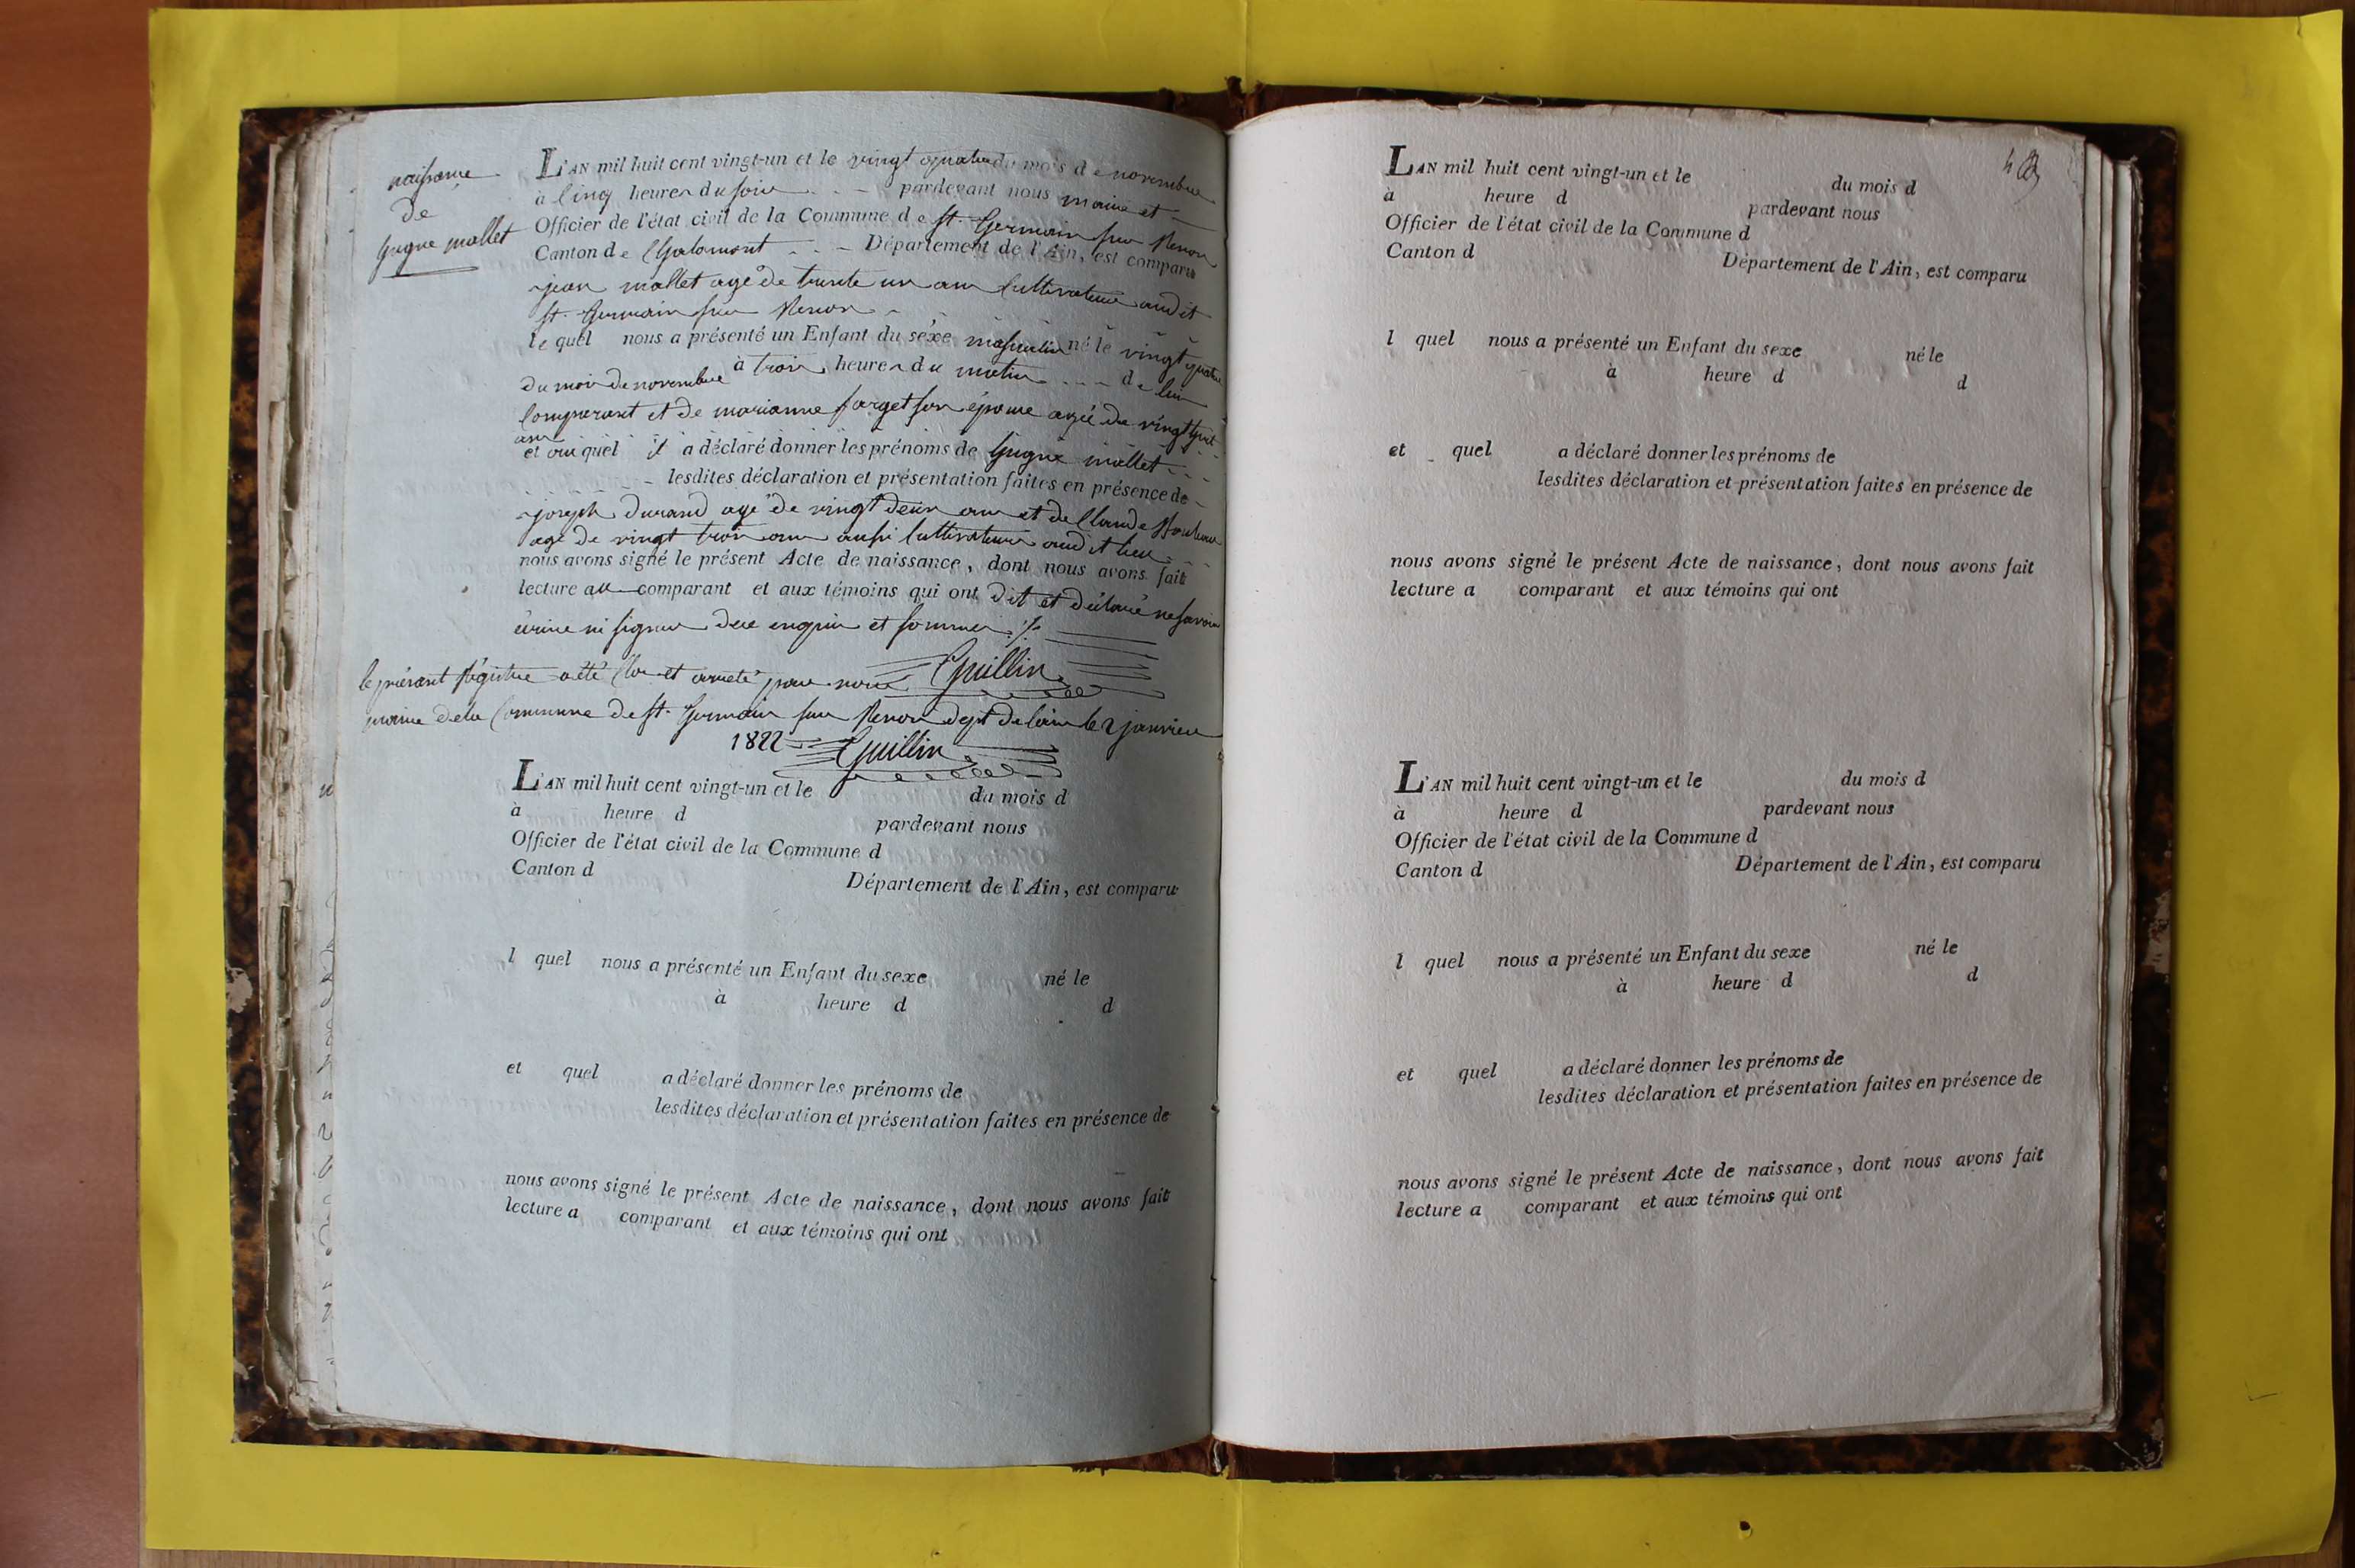 naissance
de
gugne mallet
L'AN mil huit cent vingt-un et le vingt quatre du mois de novembre
à Cinq heures du soir pardevant nous maire et
Officier de l'état civil de la Commune de St. Germain sur Renon
Canton de Chalamont Département de l'Ain, est comparu
jean mallet agé de trente un ans Cultivateur audit
St. Germain sur Renon
le quel nous a présenté un Enfant du sexe masculin né le vingt quatre
du mois de novembre à trois heures du matin de lui
Comparant et de marianne farget son épouse agée de vingt huit
ans
et auquel il a déclaré donner les prénoms de gugne mallet
lesdites déclaration et présentation faites en présence de
joseph durand agé de vingt deux ans et de Claude
agé de vingt trois ans aussi Cultivateurs audit lieu
nous avons signé le présent Acte de naissance, dont nous avons fait
lecture au comparant et aux témoins qui ont dit et déclaré ne savoir
écrire ni signer de ce enquis et sommés ./.
Guillin
le présent régistre a été Clos et arreté par nous
maire de la Commune de St. Germain sur Renon dept de l'ain le 2 janvier
1822 Guillin
L'AN mil huit cent vingt-un et le du mois d
à heure d pardevant nous
Officier de l'état civil de la Commune d
Canton d Département de l'Ain, est comparu
l quel nous a présenté un Enfant du sexe né le
à heure d d
et quel a déclaré donner les prénoms de
lesdites déclaration et présentation faites en présence de
nous avons signé le présent Acte de naissance, dont nous avons fait
lecture a comparant et aux témoins qui ont
L'AN mil huit cent vingt-un et le du mois d
à heure d pardevant nous
Officier de l'état civil de la Commune d
Canton d Département de l'Ain, est comparu
l quel nous a présenté un Enfant du sexe né le
à heure d d
et quel a déclaré donner les prénoms de
lesdites déclaration et présentation faites en présence de
nous avons signé le présent Acte de naissance, dont nous avons fait
lecture a comparant et aux témoins qui ont
L'AN mil huit cent vingt-un et le du mois d
à heure d pardevant nous
Officier de l'état civil de la Commune d
Canton d Département de l'Ain, est comparu
l quel nous a présenté un Enfant du sexe né le
à heure d d
et quel a déclaré donner les prénoms de
lesdites déclaration et présentation faites en présence de
nous avons signé le présent Acte de naissance, dont nous avons fait
lecture a comparant et aux témoins qui ont